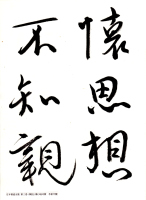 懷思想
不知親